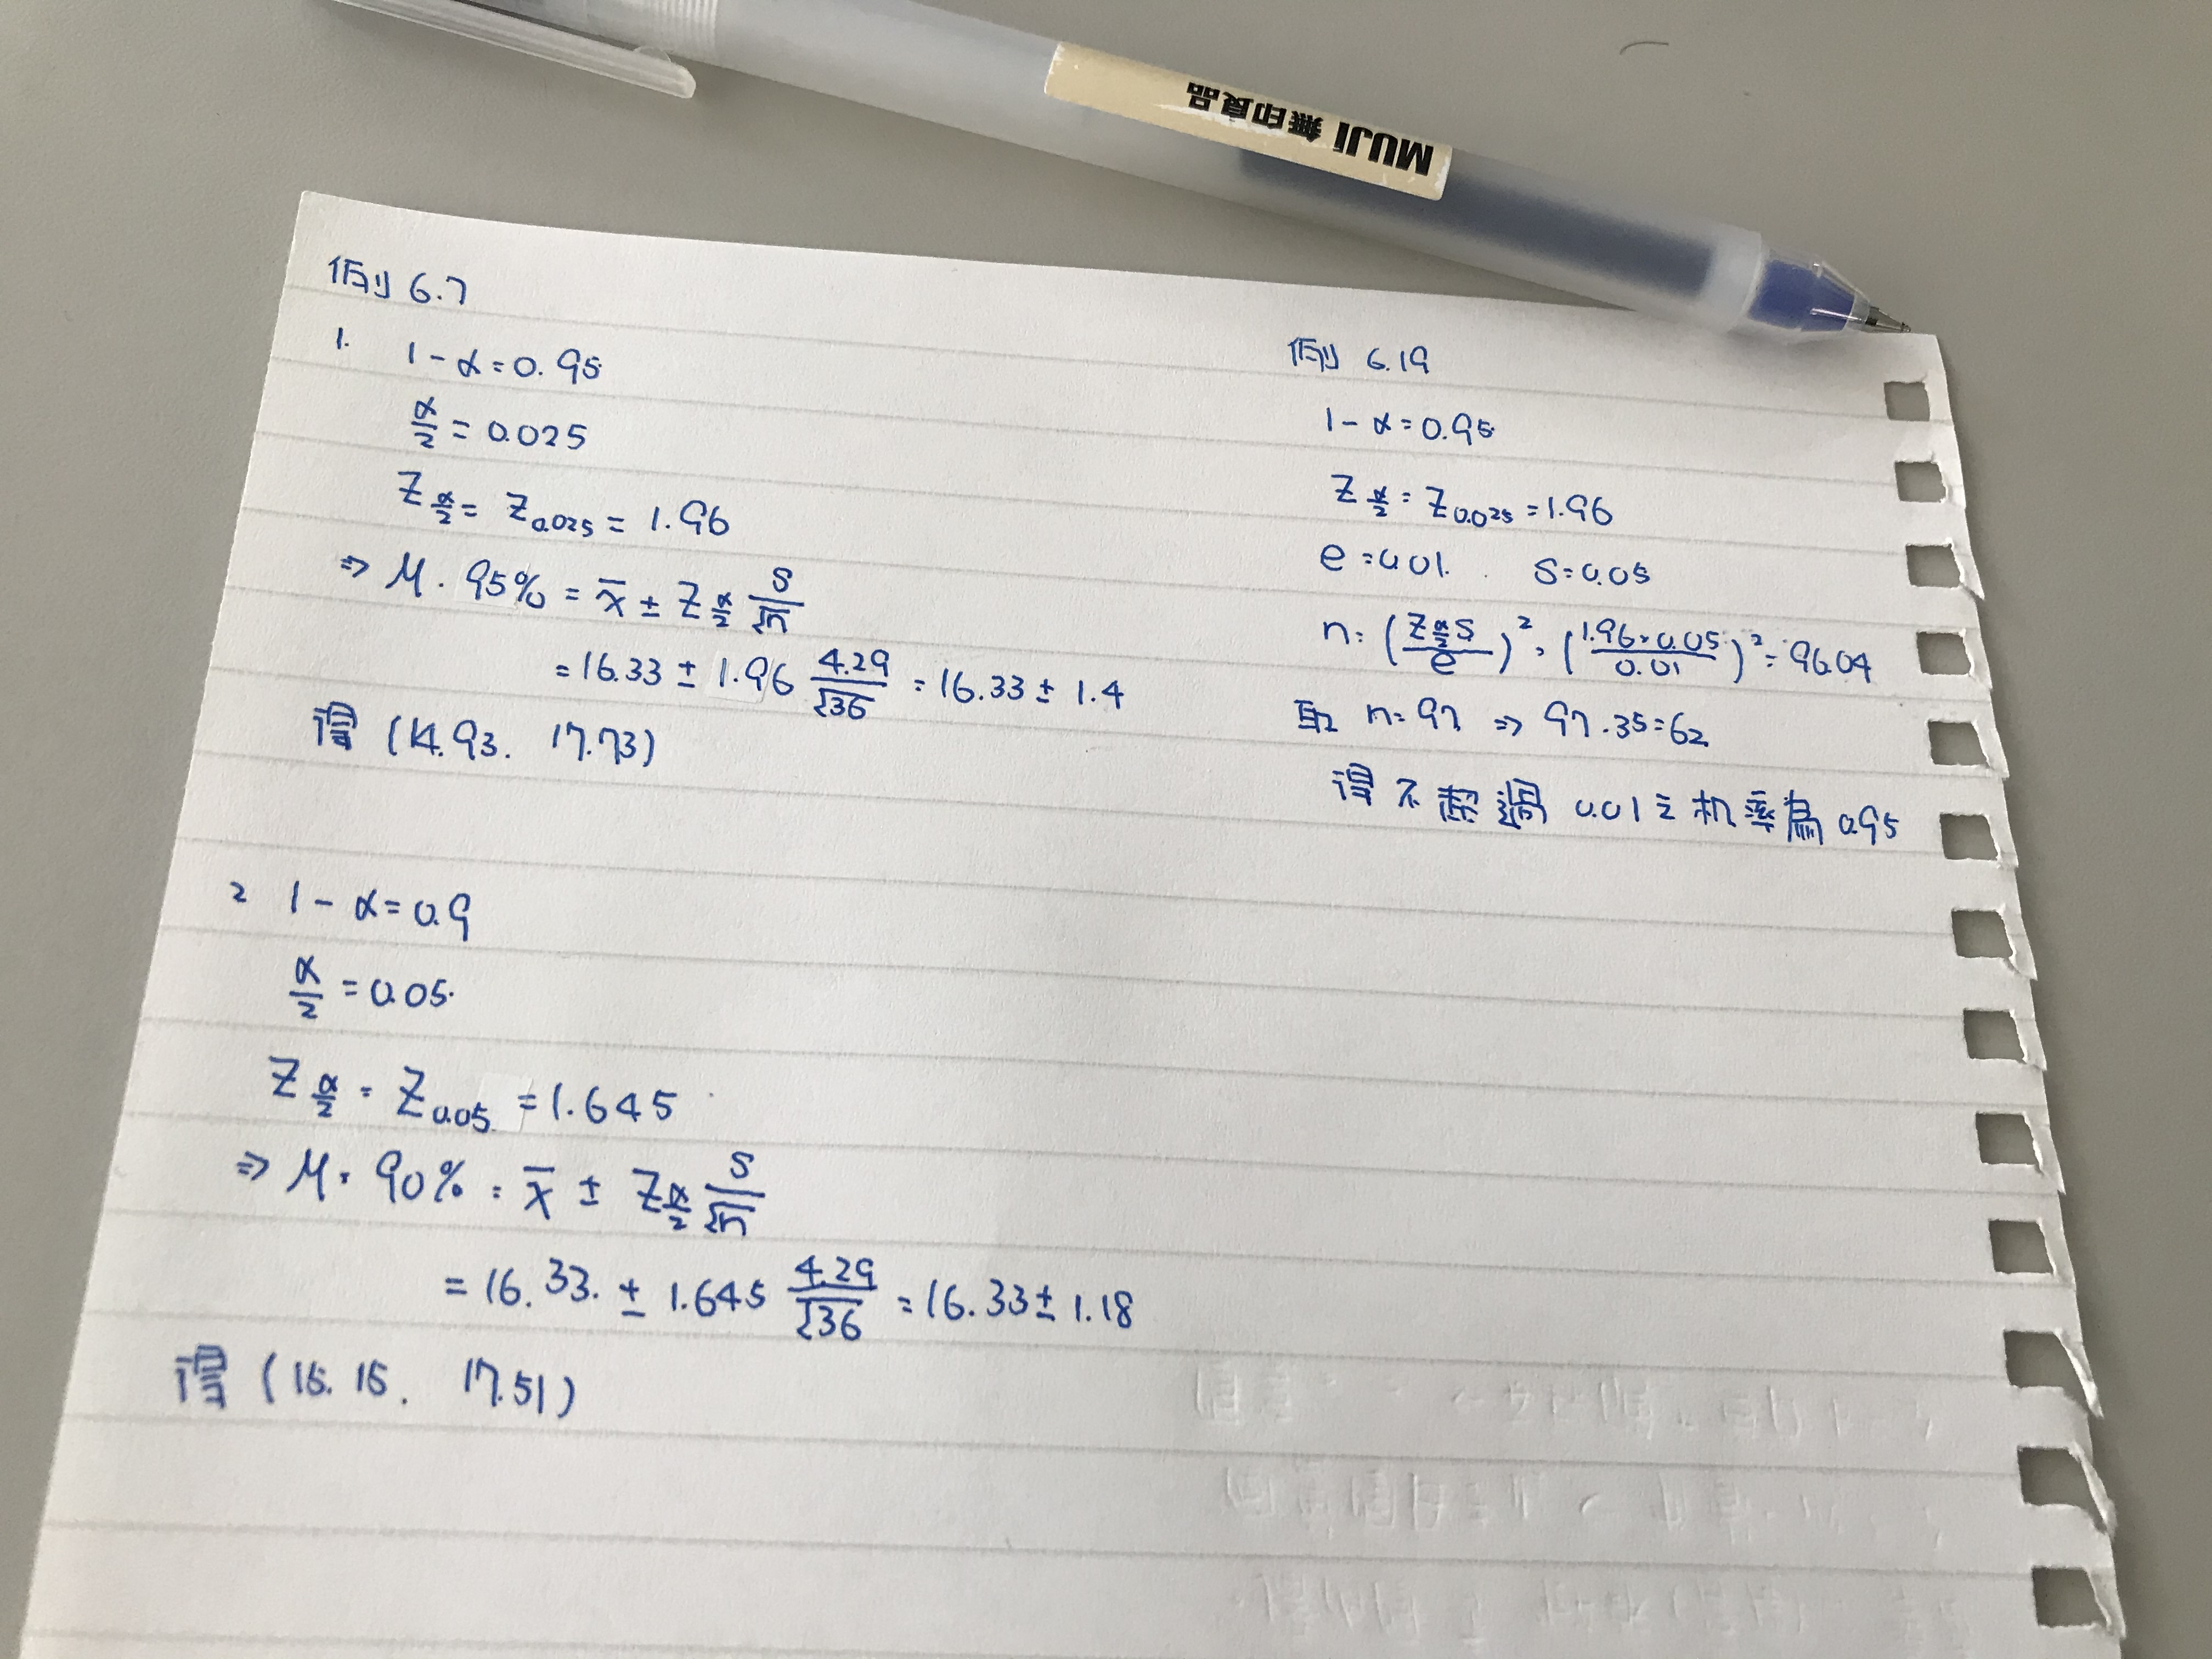 MUJI 無印良品
例 6.7
1. 1-α=0.95
α/2 = 0.025
Z α/2 = Z0.025 = 1.96
⇒ μ. 95% = x̄ ± Z α/2 S/√n
= 16.33 ± 1.96 4.29/√36 = 16.33 ± 1.4
得 (14.93. 17.73)
2 1-α=0.9
α/2 = 0.05.
Z α/2 = Z0.05 = 1.645
⇒ μ. 90% = x̄ ± Z α/2 S/√n
= 16.33. ± 1.645 4.29/√36 = 16.33 ± 1.18
得 (15.15. 17.51)
例 6.19
1-α=0.95
Z α/2 = Z0.025 = 1.96
e=0.01. S=0.05
n= (Z α/2 S/e)² = (1.96×0.05/0.01)² = 96.04
取 n=97 ⇒ 97.35=62
得不超過 0.01之机率為 0.95